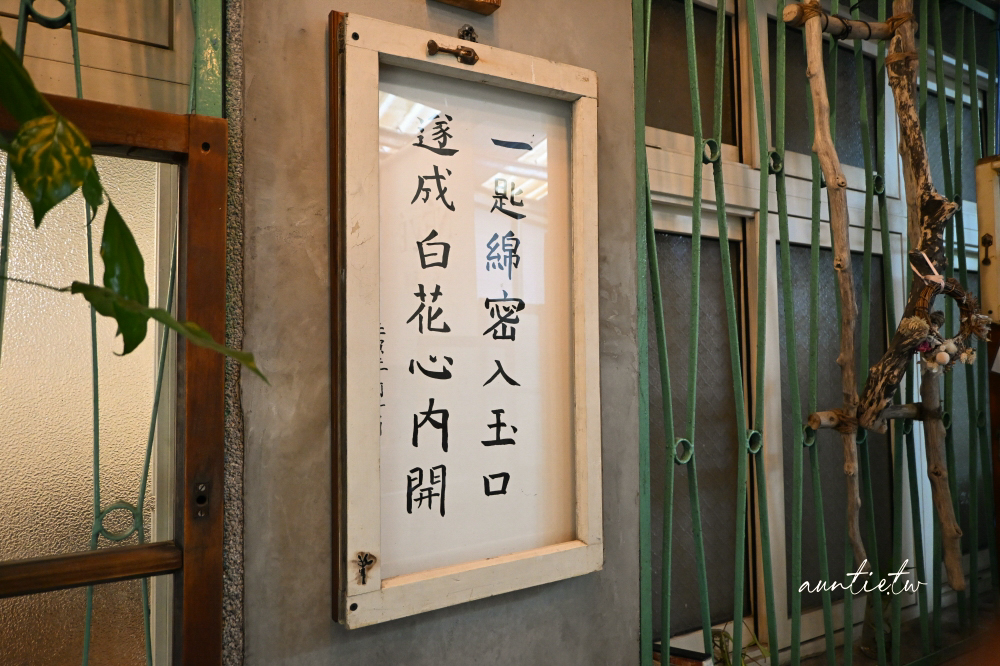 一匙綿密入玉口
遂成白花心内開
auntie.tw